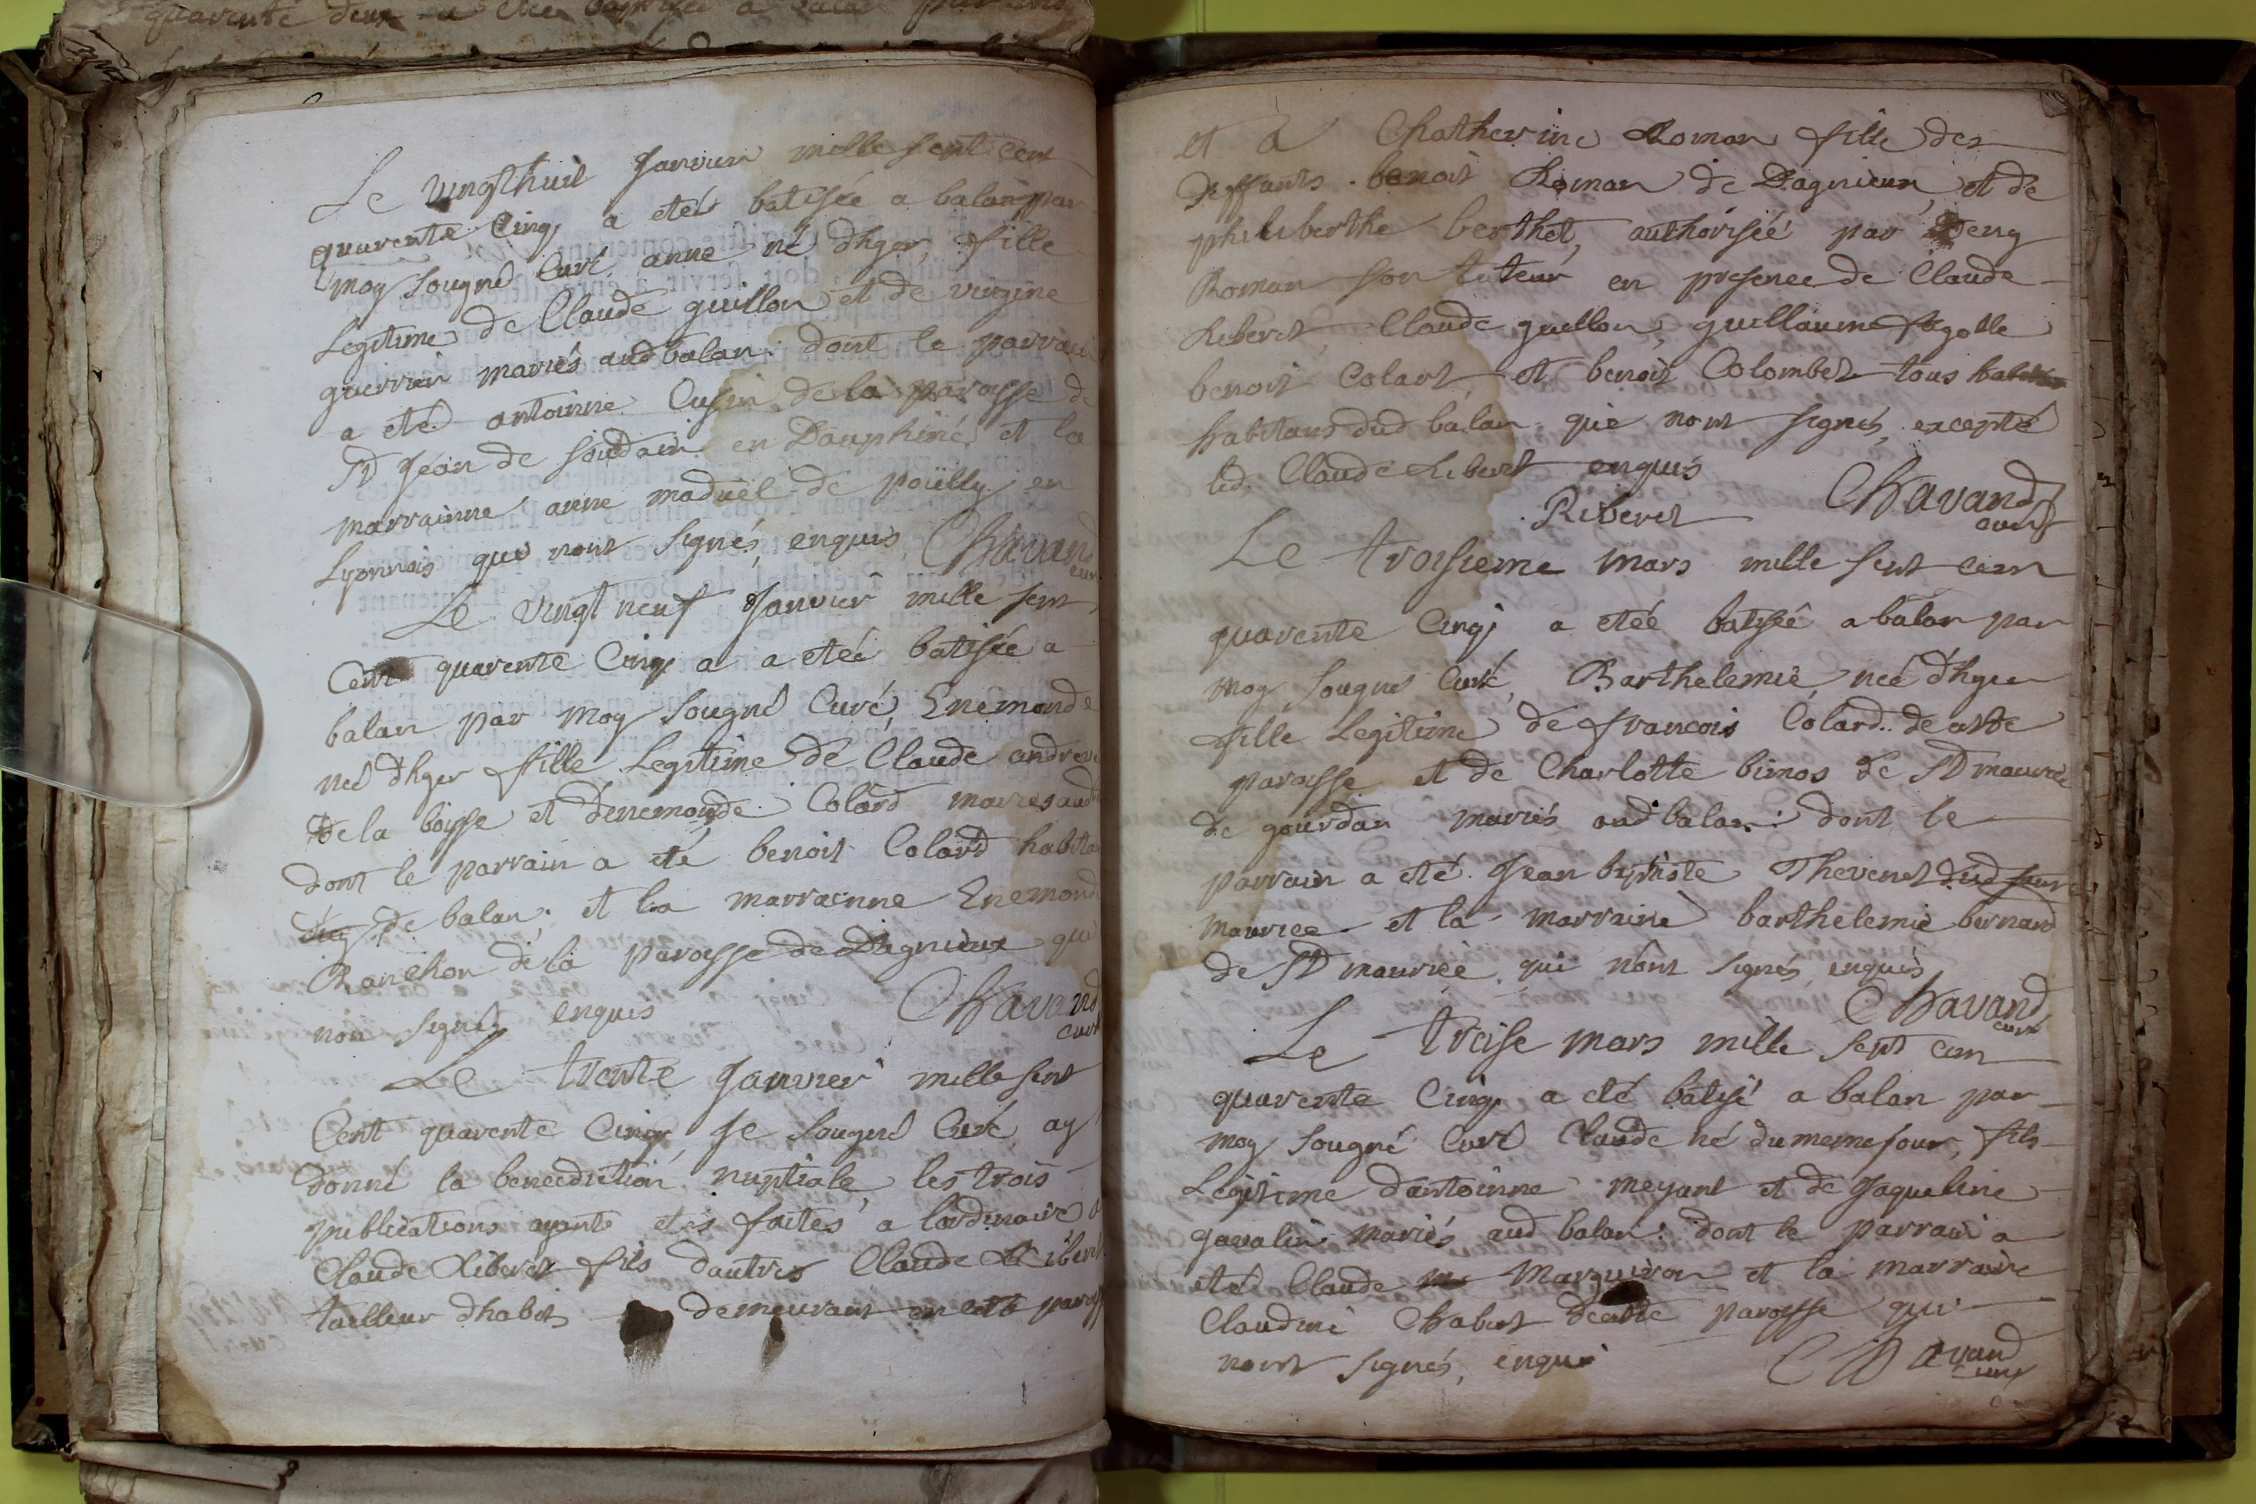 Le vingthuit Janvier mille sept cent
quarente Cinq a etéé batisée a balan par
moy sougné Curé, anne né d'hyer, fille
Legitime de Claude guillon et de virgine
guerrier mariés aud balan: dont le parrain
a eté antoinne Cusin de la paroisse de
St Jean de soudain en Dauphiné, et la
marrainne anne maduel de poüilly en
Lyonnois qui nont signés, enquis Chavand
curé
Le vingt neuf Janvier mille sept
Cent quarente Cinq a a etéé batisée a
balan par moy sougné Curé, Enemonde
neé d'hyer fille Legitime de Claude andreve
De la boysse et d'enemonde Colard mariés aud
dont le parrain a eté benoit Colard habitan
de balan, et la marrainne Enemonde
Ranchon de la paroysse de Dagnieux qui
non signés enquis Chavand
curé
Le trente Janvier mille sept
Cent quarente Cinq, Je sougné Curé, ay
donné la benediction nuptiale, les trois
publications ayants etés faites a lordinaire a
Claude Riberet fils d'autres Claude Riberet
tailleur d'habits demeurant en cette paroisse
et a Chatherine Roman fille des
Deffunts benoit Roman de Dagnieux, et de
philiberthe berthet, authorisée par Deny
Roman son tuteur en presence de Claude
Riberet, Claude guillon, guillaume
benoit Colart et benoit Colombet tous
habitans dud balan qui nont signés, excepté
led. Claude Riberet enquis
Riberet Chavand
curé
Le troisieme mars mille sept cen
quarente Cinq a etéé batiseé a balan par
moy sougné Curé, Barthelemie neé d'hyer
fille Legitime de francois Colard de cette
paroisse et de Charlotte bimos de St maurice
de gourdan mariés aud balan: dont le
parrain a eté Jean baptiste Thevenet dud saint
maurice et la marraine barthelemie bernard
de St maurice qui nont signés enquis
Chavand
curé
Le treise mars mille sept cen
quarente Cinq a eté batisé a balan par
moy sougné Curé Claude né du meme jour, fils
Legitime d'antoinne meyant et de Jaqueline
gavalin mariés aud balan: dont le parrain a
eté Claude Marquiron et la marraine
Claudine Chabert de cette paroysse qui
nont signés, enqui Chavand
curé